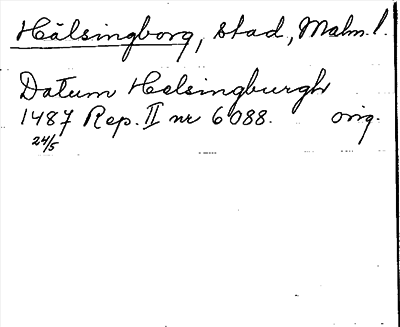 Hälsingborg, stad, Malm. l.
Datum Helsingburgh
1487 Rep. II nr 6088. orig.
24/5